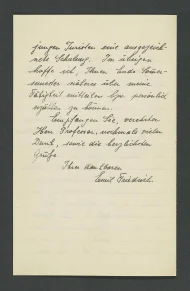 jungen Juristen eine ausgezeich-
nete Schulung. Im übrigen
hoffe ich, Ihnen Ende Sommer-
semester näheres über meine
Tätigkeit mitteilen bzw. persönlich
erzählen zu können.
Empfangen Sie, verehrter
Herr Professor, nochmals vielen
Dank, sowie die herzlichsten
Grüße
Ihres dankbaren
Emil Friedrich.